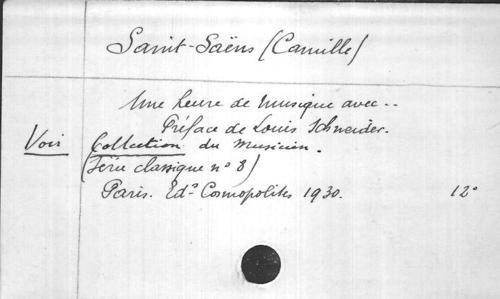 Saint-Saëns (Camille)
Une heure de musique avec..
Préface de Louis Schneider.
Voir Collection du Musicien.
(Série classique n° 8)
Paris. Edns Cosmopolites 1930. 12°